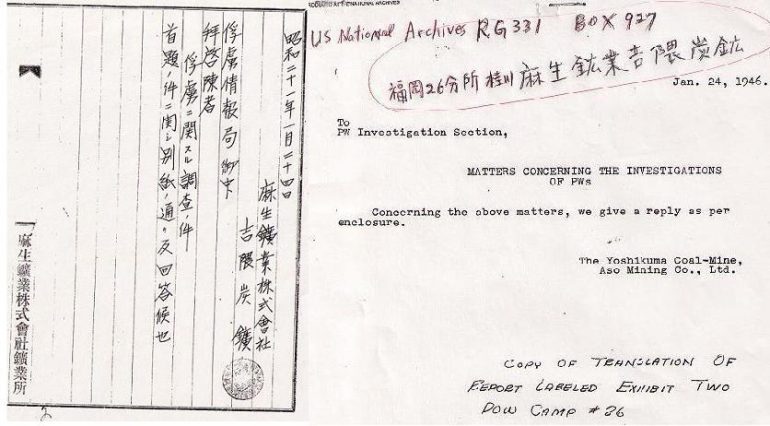 昭和二十一年一月二十四日
麻生鑛業株式會社
吉隈炭鑛
俘虜情報局 御中
拝啓陳者
俘虜ニ関スル調査ノ件
首題ノ件ニ関シ別紙ノ通リ及回答候也
麻生鑛業株式會社鑛業所
US National Archives RG 331 BOX 927
福岡26分所 桂川 麻生鉱業吉隈炭鉱
Jan. 24, 1946.
To
PW Investigation Section,
MATTERS CONCERNING THE INVESTIGATIONS
OF PWs
Concerning the above matters, we give a reply as per
enclosure.
The Yoshikuma Coal-Mine,
Aso Mining Co., Ltd.
COPY OF TRANSLATION OF
REPORT LABELED EXHIBIT TWO
POW CAMP #26